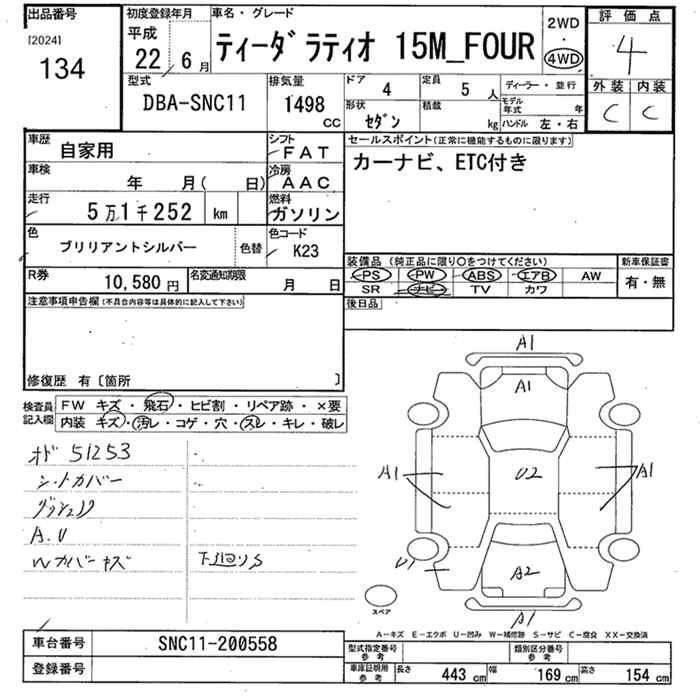 出品番号
[2024]
134
初度登録年月
平成
22 6月
車名・グレード
ティーダ ラティオ 15M_FOUR
2WD
4WD
評価点
4
外装 内装
C C
型式
DBA-SNC11
排気量
1498 cc
ドア 4
定員 5 人
ディーラー・並行
形状 セダン
積載 kg
モデル年式 年
ハンドル 左・右
車歴 自家用
シフト FAT
セールスポイント(正常に機能するものに限ります)
カーナビ、ETC付き
車検 年 月( 日)
冷房 AAC
走行 5万1千252 km
燃料 ガソリン
色 ブリリアントシルバー
色替
色コード K23
R券 10,580 円
名変通知期限 月 日
装備品 (純正品に限り○をつけてください)
PS PW ABS エアB AW
SR ナビ TV カワ
新車保証書
有・無
後日品
注意事項申告欄(不具合内容等は具体的に記入して下さい)
修復歴 有〔箇所 〕
検査員記入欄
FW キズ・飛石・ヒビ割・リペア跡・×要
内装 キズ・汚レ・コゲ・穴・スレ・キレ・破レ
オド 51253
シートカバー
A.V
Wカバーキズ
下廻りS
A1
A1
A1
U2
A1
U1
A2
A1
スペア
A-キズ E-エクボ U-凹み W-補修跡 S-サビ C-腐食 XX-交換済
車台番号 SNC11-200558
登録番号
型式指定番号 参考
類別区分番号 参考
車庫証明用 参考
長さ 443 cm
幅 169 cm
高さ 154 cm